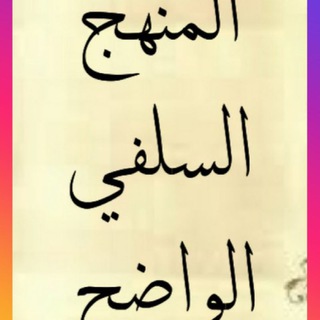 المنهج
السلفي
الواضح